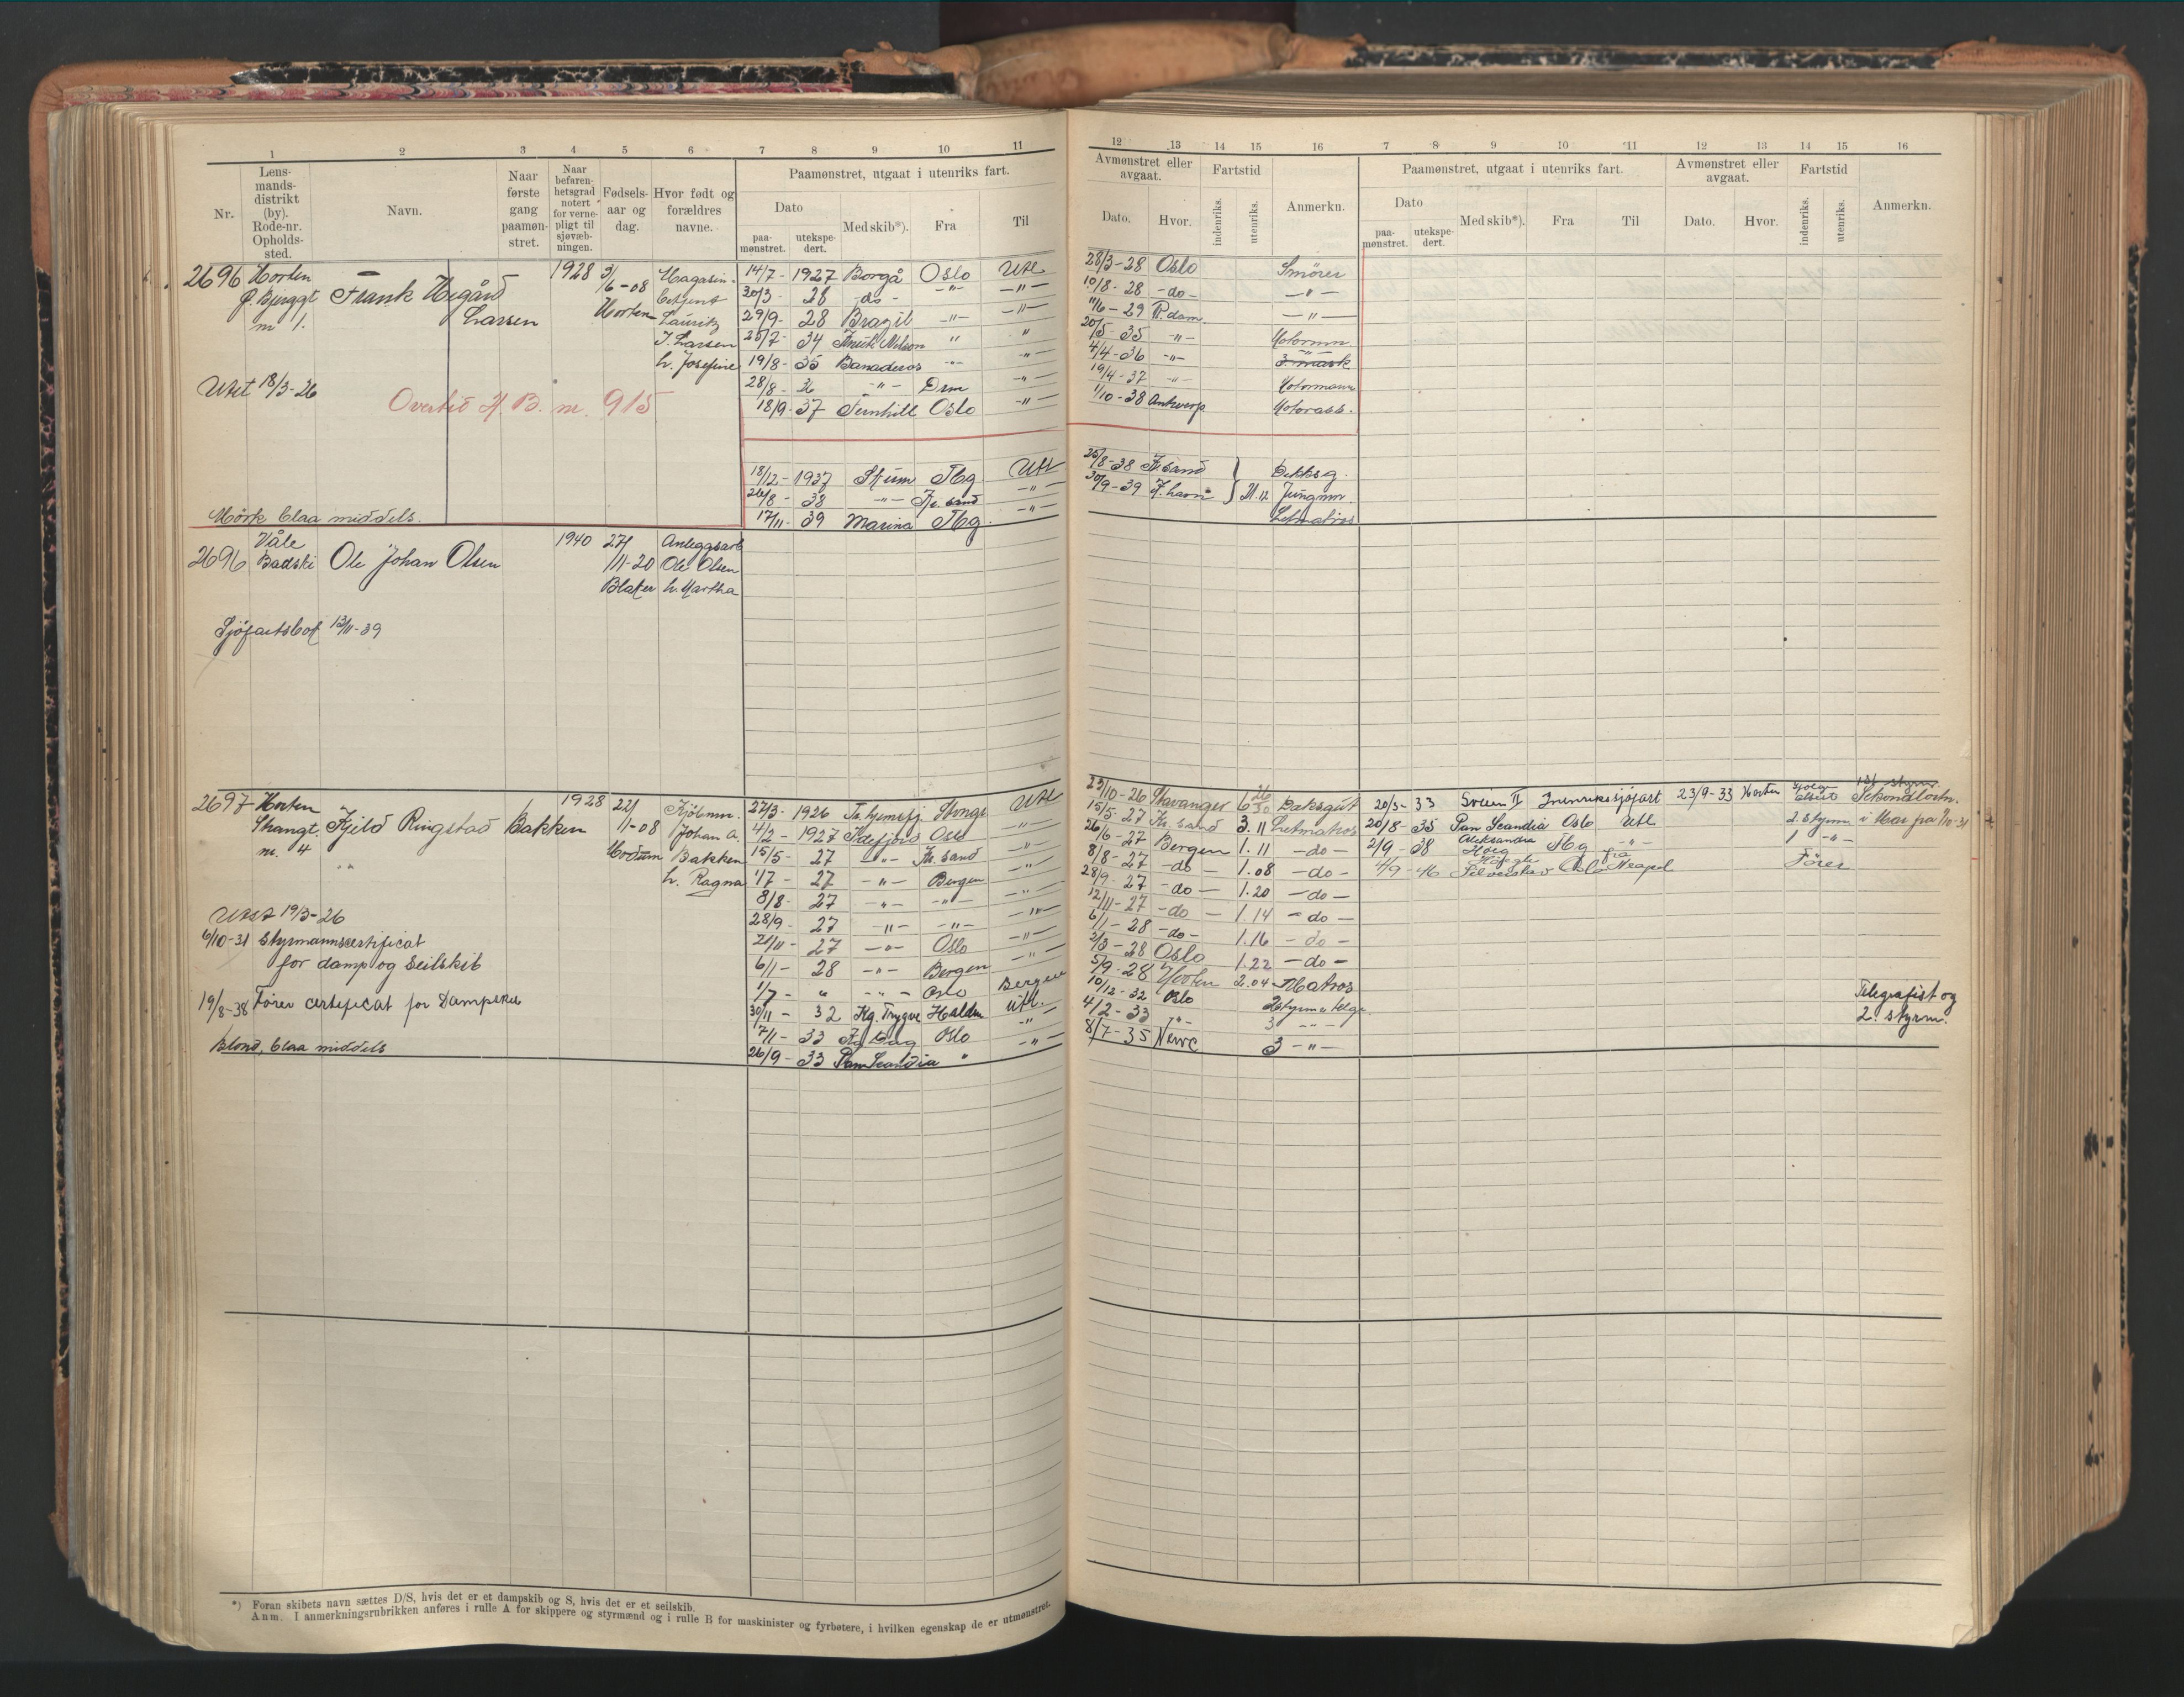 1 2 3 4 5 6 7 8 9 10 11
Nr. Lens-mands-distrikt (by). Rode-nr. Opholds-sted. Navn. Naar første gang paamøn-stret. Naar befaren-hetsgrad notert for verne-pligt til sjøvæb-ningen. Fødsels-aar og dag. Hvor født og forældres navne.
Paamønstret, utgaat i utenriks fart.
Dato paa-mønstret. utekspe-dert. Med skib*). Fra Til
2696 Horten 1928 3/6-08 Magasin-
Frank Hegård Larsen
Horten Lauritz
J. Larsen
h. Josefine
14/7- 1927 Borgå Oslo Utl
30/3- 28 -do- -"- -"-
29/9- 28 Brazil -"- -"-
25/7- 34 Knut Nelson " "
19/8- 35 Banaderos -"- -"-
28/8- 36 -"- Drm -"-
18/9- 37 Fernhill Oslo -"-
Utst 18/3-26
Overtid M. B. nr. 915
18/12- 1937 Skum Tbg Utl
26/8- 38 -"- Kr. sand -"-
17/11- 39 Marina Tbg. -"-
Mörk blaa middels.
2696 Våle Badski Ole Johan Olsen 1940 27/11-20 Anleggsarb
Ole Olsen
Blaker h. Martha
Sjöfartsbok 13/11-39
2697 Horten 1928 22/11-08 Kjöbmn.
Strangt. nr. 4 Kjeld Ringstad Bakken
Johan A. Bakken
Modum
h. Ragna
27/3- 1926 Utl
4/2- 1927 Idefjord Oslo -"-
15/5- 27 -"- Kr. sand -"-
1/7- 27 -"- Bergen -"-
8/8- 27 -"- -"- -"-
28/9- 27 -"- -"- -"-
21/11- 27 -"- Oslo -"-
6/1- 28 -"- Bergen -"-
1/7- " -"- Oslo Bergen
30/11- 32 Kg. Trygve Halden Utl.
7/1- 33 Oslo -"-
26/9- 33 Pan Scandia " -"-
Utst 19/3-26
6/10-31 Styrmannscertificat
for damp og Seilskib
19/8-38 Förer certificat for Dampskib
Blond, blaa middels
*) Foran skibets navn sættes D/S, hvis det er et dampskib og S, hvis det er et seilskib.
Anm. I anmerkningsrubrikken anføres i rulle A for skippere og styrmænd og i rulle B for maskinister og fyrbøtere, i hvilken egenskap de er utmønstret.
12 13 14 15 16 7 8 9 10 11 12 13 14 15 16
Avmønstret eller avgaat. Fartstid
Dato. Hvor. indenriks. utenriks. Anmerkn.
Paamønstret, utgaat i utenriks fart. Avmønstret eller avgaat. Fartstid
Dato paa-mønstret. utekspe-dert. Med skib*). Fra Til Dato. Hvor. indenriks. utenriks. Anmerkn.
28/3-28 Oslo Smörer
10/8-28 -do- -"-
11/6-29 R.dam -"-
20/5-35 -"- Motormn
4/4-36 -"- 3. mask
19/4-37 -"- Motormann
1/10-38 Antwerp Motorass.
25/8-38 Kr. sand Dekksg.
30/9-39 Jungmn.
Letmatros
23/10-26 Stavanger 6 26/30 Daksgut
15/5-27 Kr. sand 3.11 Letmatros
26/6-27 Bergen 1.11 -do-
8/8-27 -do- 1.08 -do-
28/9-27 -do- 1.20 -do-
12/11-27 -do- 1.14 -do-
6/1-28 -do- 1.16 -do-
2/3-28 Oslo 1.22 -do-
5/9-28 Horten 2.04 Matros
10/12-32 Oslo
4/2-33 -"- 3 -"-
8/7-35 Newc 3 -"-
20/3-33 Svein II Innenrikssjöfart 23/9-33 Horten
20/8-35 Pan Scandia Oslo Utl. 2. Styrm
2/9-38 Aleksandra Höeg Tbg -"- 1 -"-
4/9-46 Höegh Silverstar Oslo fra Neapel Förer
Telegrafist og
2. Styrm.